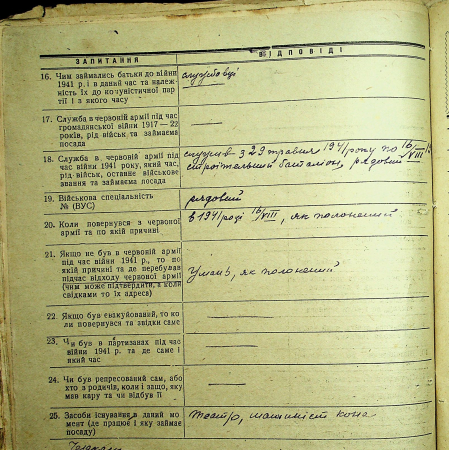 ЗАПИТАННЯ
ВІДПОВІДІ
16. Чим займались батьки до війни
1941 р. і в даний час та належ-
ність їх до комуністичної пар-
тії і з якого часу
службовці
17. Служба в червоній армії під час
громадянської війни 1917—22
років, рід військ та займаєма
посада
18. Служба в червоній армії під
час війни 1941 року, який час,
рід військ, останнє військове
звання та займаєма посада
служив з 29 травня 1941 року по 16/VIII
строітельний баталіон, рядовий
19. Військова спеціальність
№ (ВУС)
рядовий
20. Коли повернувся з червоної
армії та по якій причині
в 1941 році 16/VIII, як полонений
21. Якщо не був в червоній армії
під час війни 1941 р., то по
якій причині та де перебував
підчас відходу червоної армії
(чим може підтвердити, а коли
свідками то їх адреса)
Умань, як полонений
22. Якщо був евакуйований, то ко
ли повернувся та звідки саме
23. Чи був в партизанах під час
війни 1941 р. та де саме і
який час
24. Чи був репресований сам, або
хто з родичів, коли і защо, яку
мав кару та чи відбув її
25. Засоби існування в даний мо
мент (де працює і яку займає
посаду)
Театр, машиніст